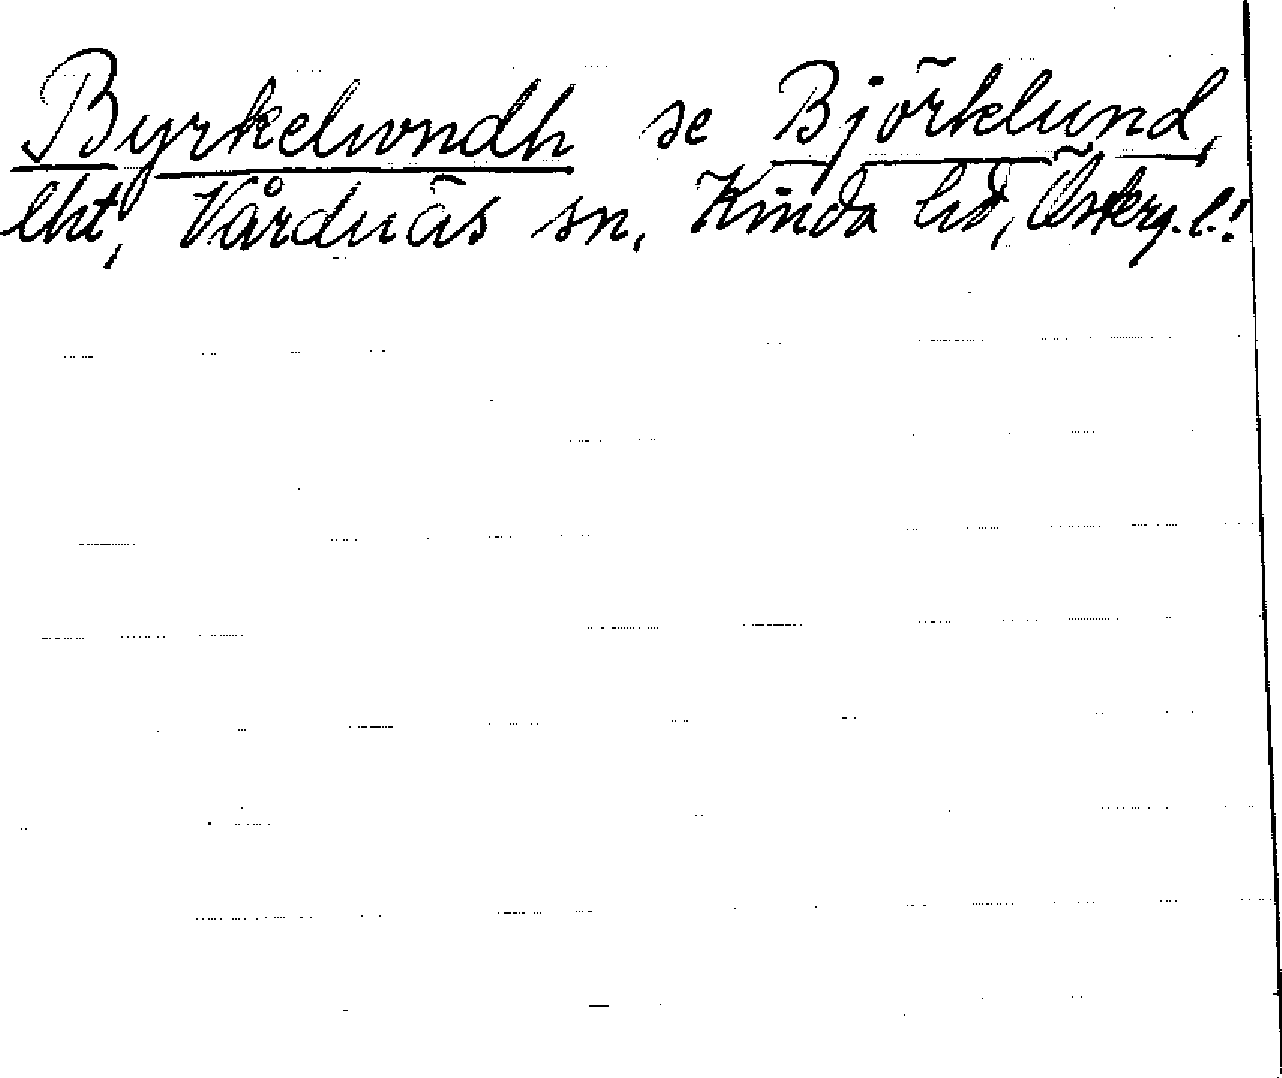 Byrkelwndh se Björklund,
lht, Vårdnäs sn, Kinda hd, Österg. l.!